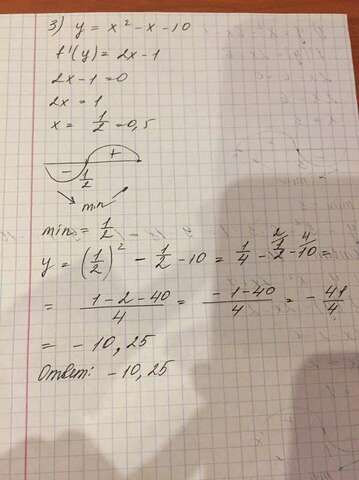 3) y = x² - x - 10
f'(y) = 2x - 1
2x - 1 = 0
2x = 1
x = 1/2 = 0,5
- +
1/2
min
min = 1/2
y = (1/2)² - 1/2 - 10 = 1/4 - 1/2 \2 - 10 \4 =
= (1 - 2 - 40)/4 = (-1 - 40)/4 = - 41/4
= - 10,25
Ответ: - 10,25